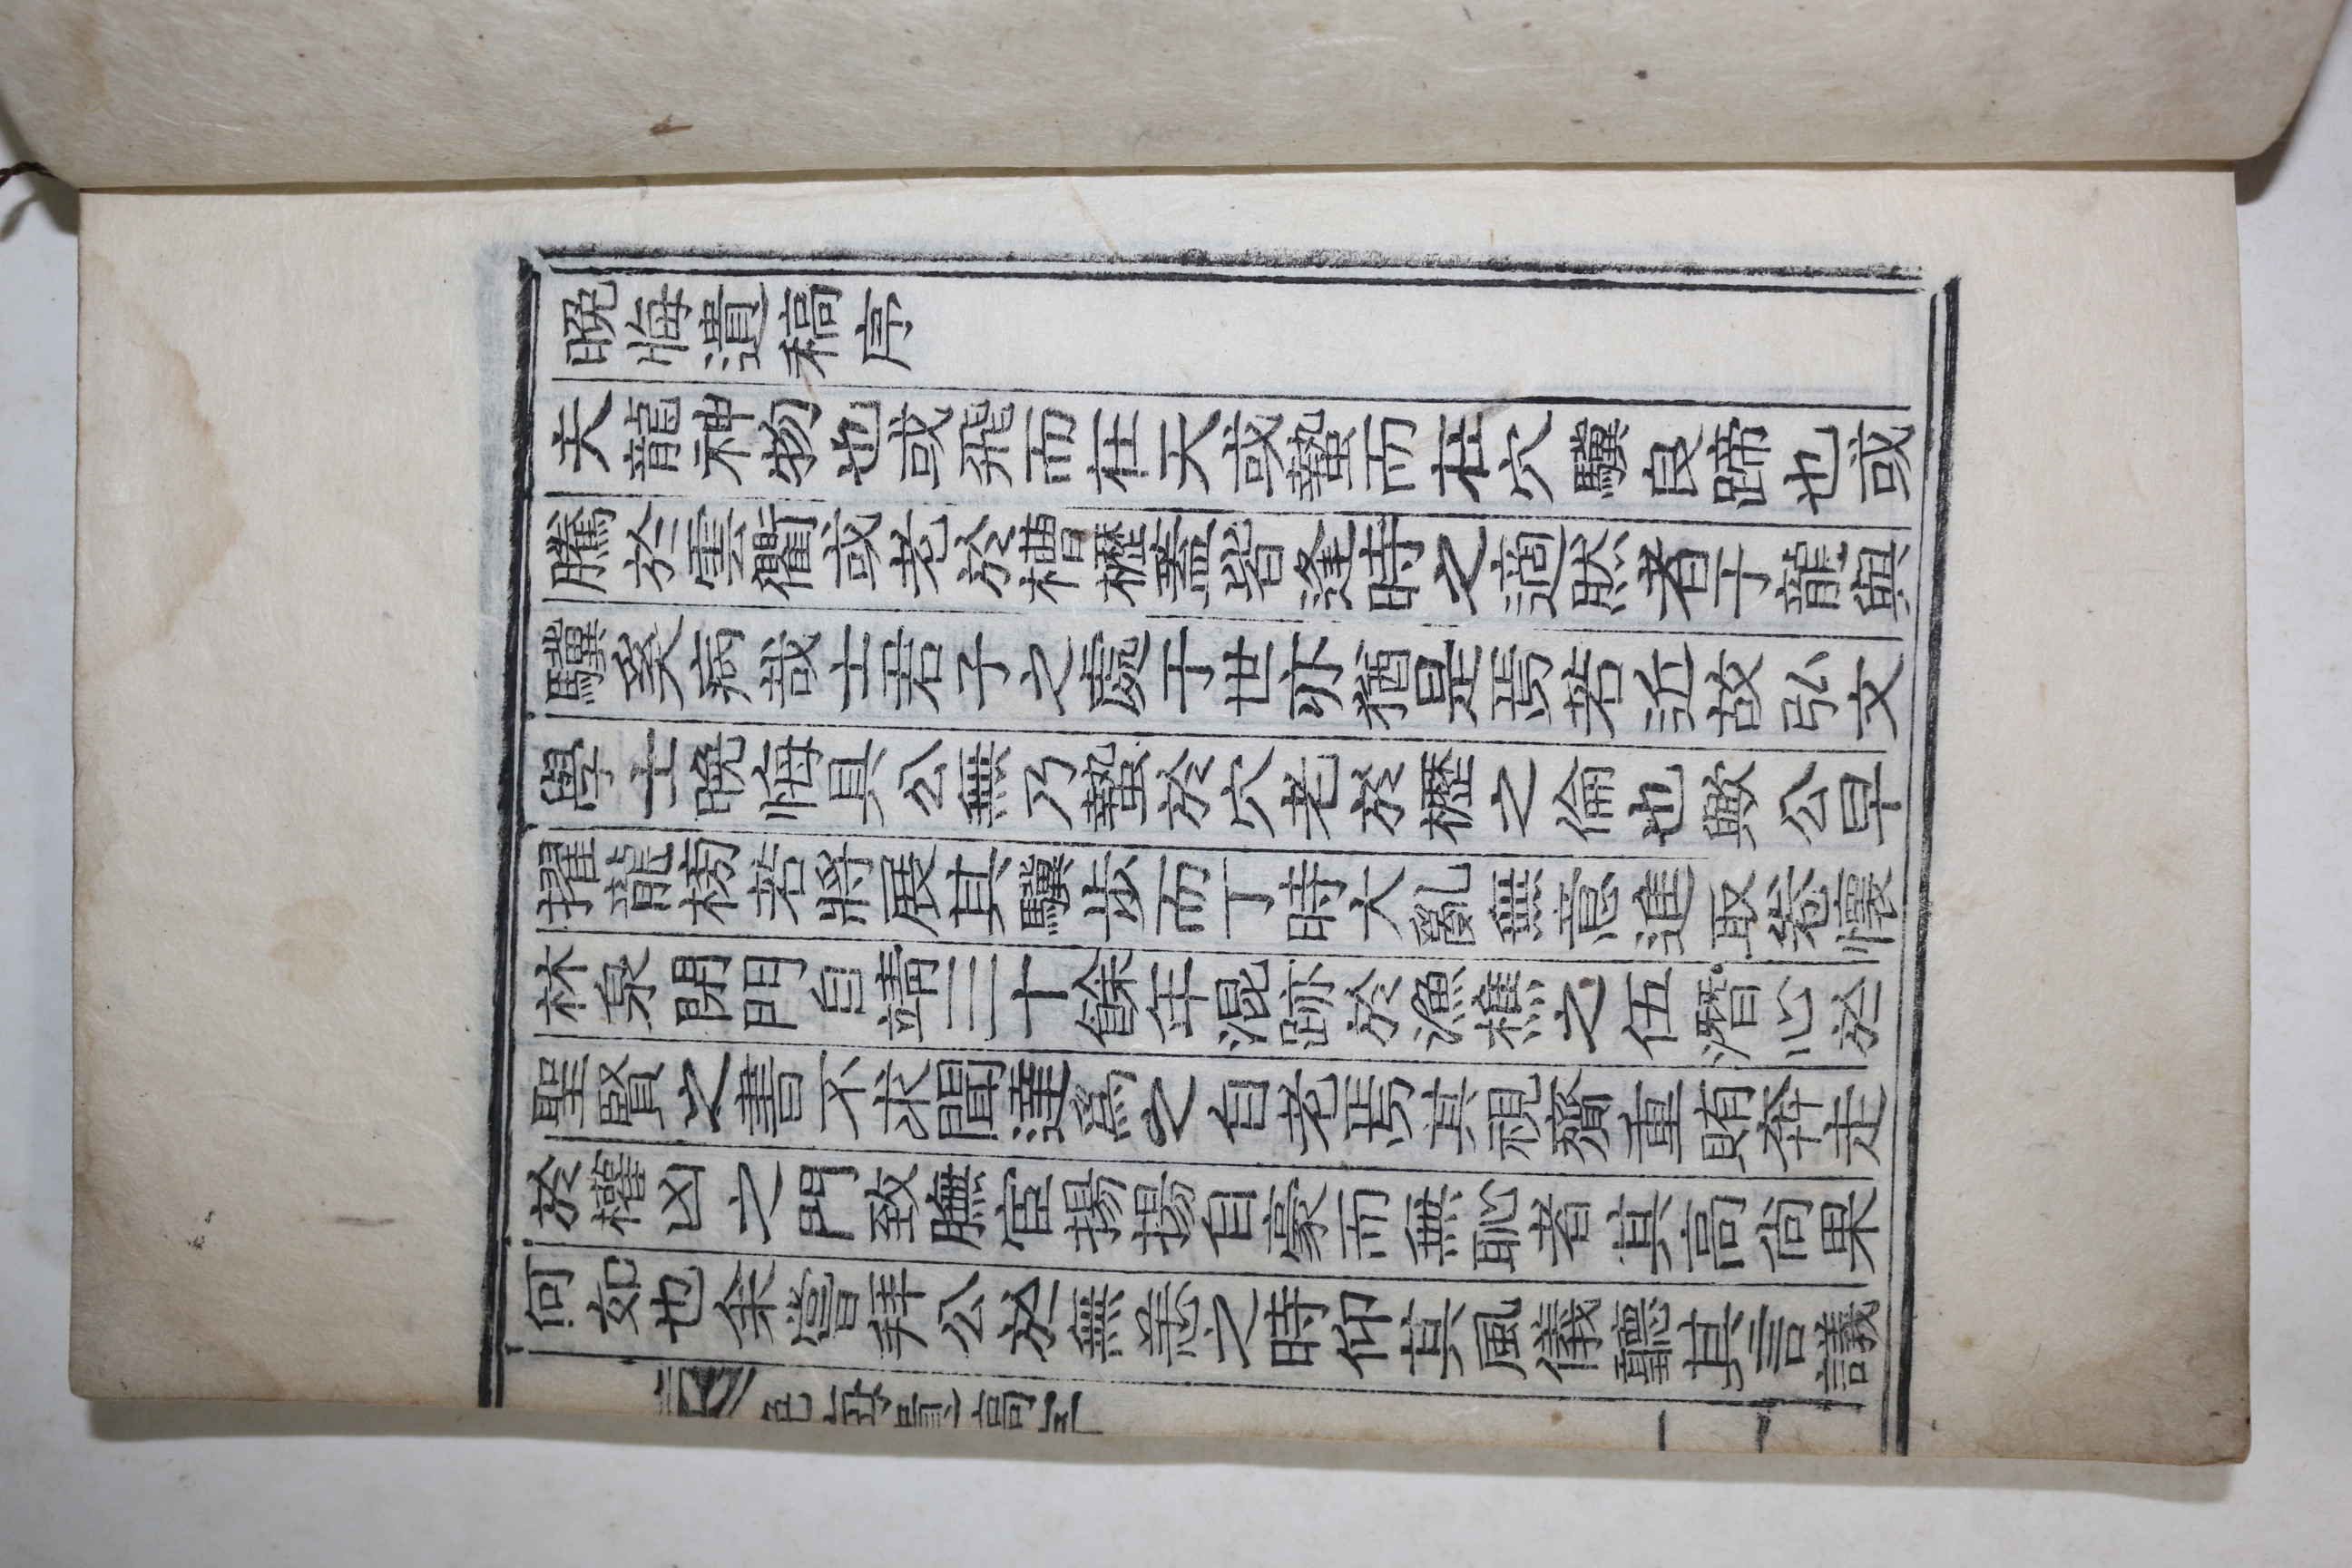 晩悔遺稿序
夫龍神物也或飛而在天或蟄而在穴驥良蹄也或
騰於雲衢或老於槽櫪蓋皆逢時之適然者于龍與
驥奚病哉士君子之處于世亦猶是焉若近故弘文
學士晩悔具公無乃蟄於穴老於櫪之倫也歟公早
擢龍榜若將展其驥步而丁時大亂無意進取卷懷
林泉閉門自靖三十餘年混跡於漁樵之伍潛心於
聖賢之書不求聞達爲之自老焉其視齎重賄奔走
於權凶之門致膴宦揚揚自豪而無恥者其高尙果
何如也余嘗拜公於無恙之時仰其風儀聽其言議
晩悔遺稿序
一